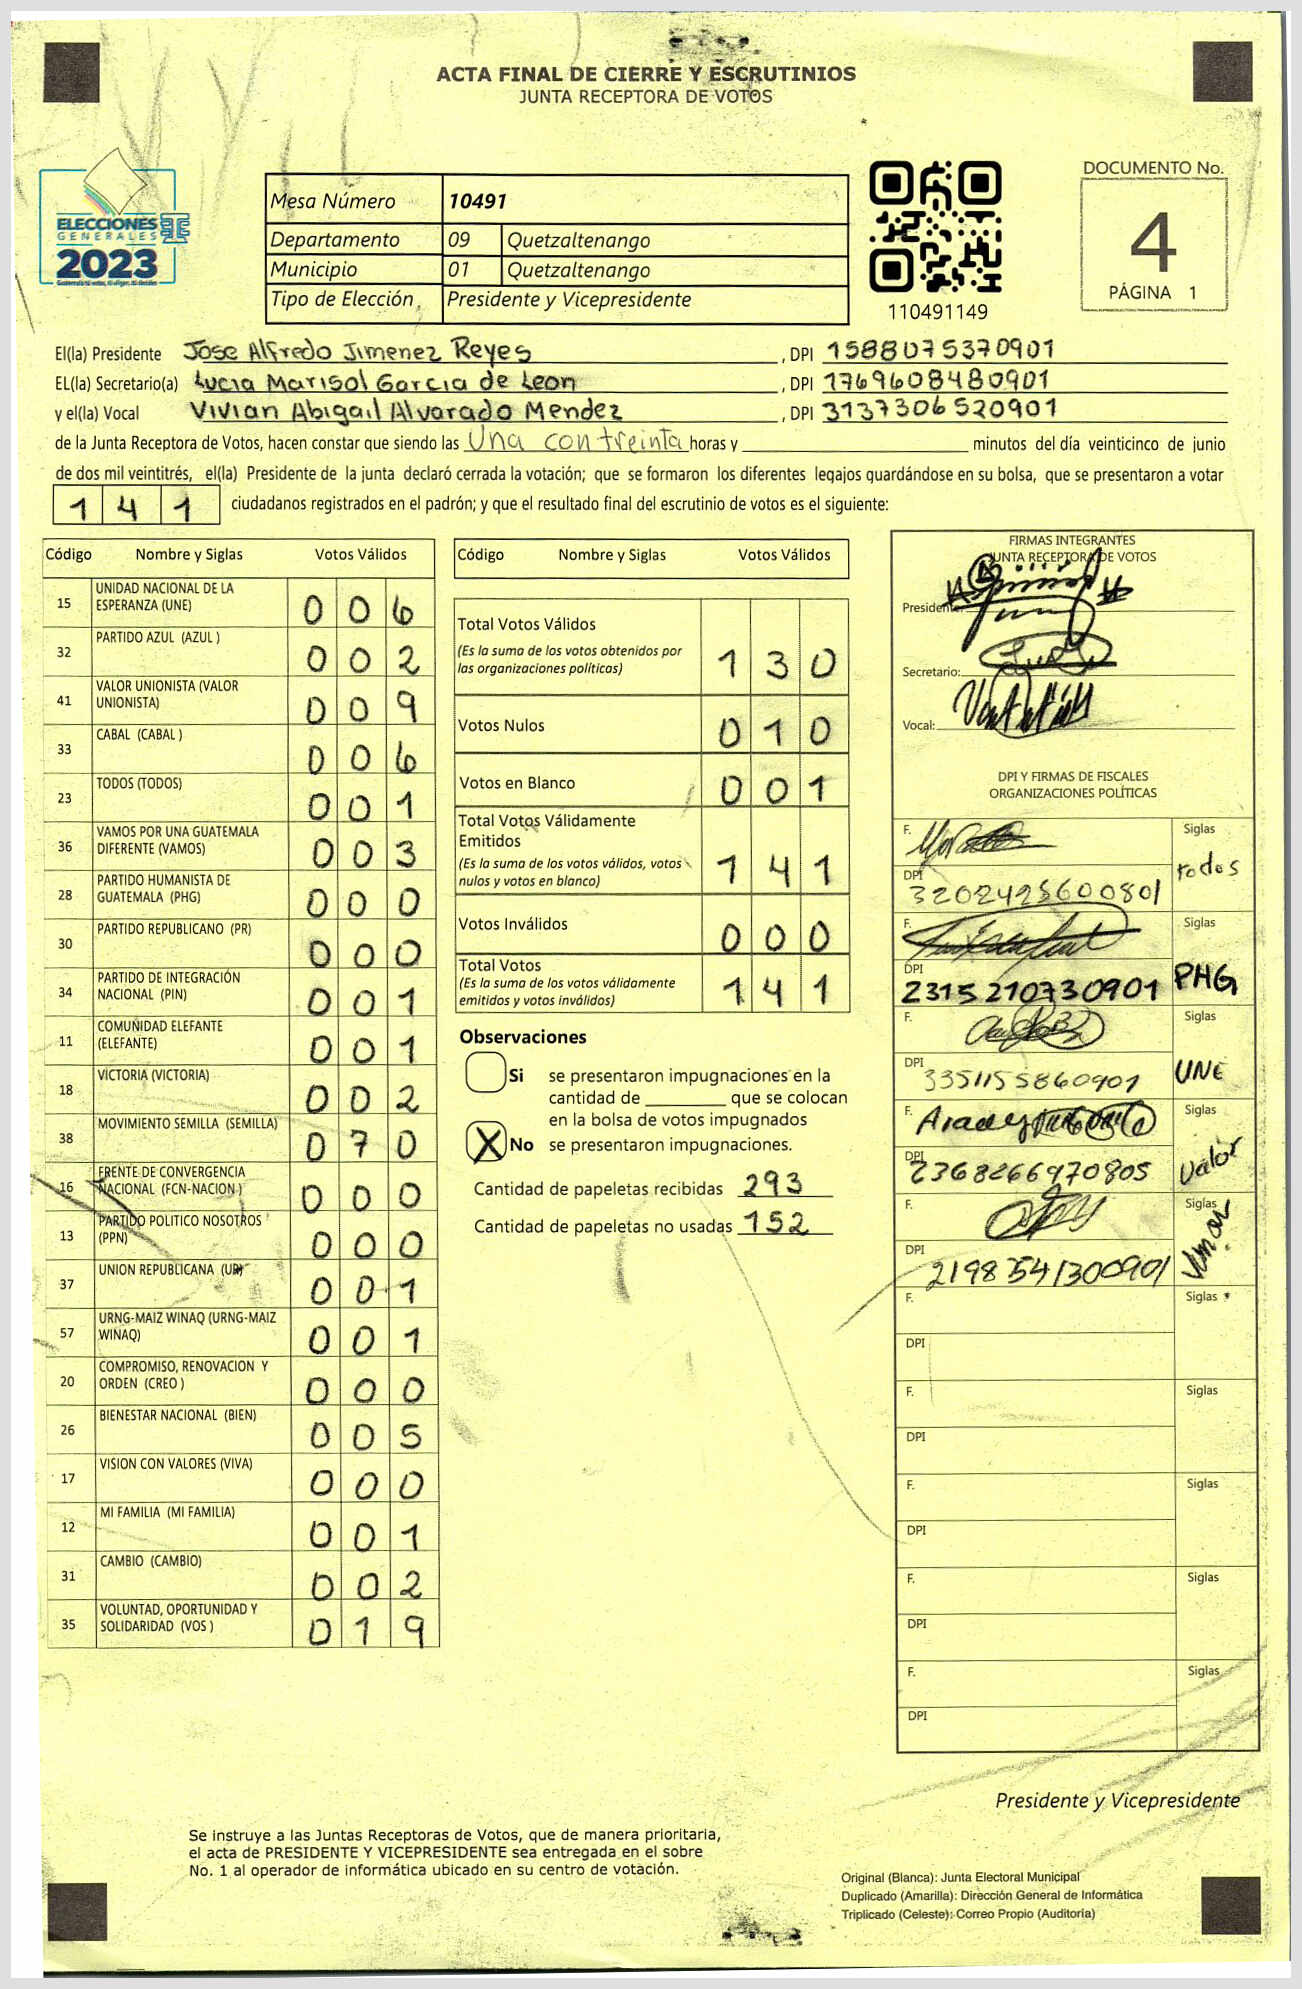 ACTA FINAL DE CIERRE Y ESCRUTINIOS
JUNTA RECEPTORA DE VOTOS
ELECCIONES
GENERALES
2023
Mesa Número 10491
Departamento 09 Quetzaltenango
Municipio 01 Quetzaltenango
Tipo de Elección Presidente y Vicepresidente
110491149
DOCUMENTO No.
4
PÁGINA 1
El(la) Presidente Jose Alfredo Jimenez Reyes , DPI 1588075370901
EL(la) Secretario(a) Lucia Marisol Garcia de Leon , DPI 1769608480901
y el(la) Vocal Vivian Abigail Alvarado Mendez , DPI 3137306520901
de la Junta Receptora de Votos, hacen constar que siendo las Una con treinta horas y minutos del día veinticinco de junio
de dos mil veintitrés, el(la) Presidente de la junta declaró cerrada la votación; que se formaron los diferentes legajos quardándose en su bolsa, que se presentaron a votar
1 4 1 ciudadanos registrados en el padrón; y que el resultado final del escrutinio de votos es el siguiente:
Código Nombre y Siglas Votos Válidos
15 UNIDAD NACIONAL DE LA
ESPERANZA (UNE) 0 0 6
32 PARTIDO AZUL (AZUL ) 0 0 2
41 VALOR UNIONISTA (VALOR
UNIONISTA) 0 0 9
33 CABAL (CABAL ) 0 0 6
23 TODOS (TODOS) 0 0 1
36 VAMOS POR UNA GUATEMALA
DIFERENTE (VAMOS) 0 0 3
28 PARTIDO HUMANISTA DE
GUATEMALA (PHG) 0 0 0
30 PARTIDO REPUBLICANO (PR) 0 0 0
34 PARTIDO DE INTEGRACIÓN
NACIONAL (PIN) 0 0 1
11 COMUNIDAD ELEFANTE
(ELEFANTE) 0 0 1
18 VICTORIA (VICTORIA) 0 0 2
38 MOVIMIENTO SEMILLA (SEMILLA) 0 7 0
16 FRENTE DE CONVERGENCIA
NACIONAL (FCN-NACION ) 0 0 0
13 PARTIDO POLITICO NOSOTROS
(PPN) 0 0 0
37 UNION REPUBLICANA (UR) 0 0 1
57 URNG-MAIZ WINAQ (URNG-MAIZ
WINAQ) 0 0 1
20 COMPROMISO, RENOVACION Y
ORDEN (CREO ) 0 0 0
26 BIENESTAR NACIONAL (BIEN) 0 0 5
17 VISION CON VALORES (VIVA) 0 0 0
12 MI FAMILIA (MI FAMILIA) 0 0 1
31 CAMBIO (CAMBIO) 0 0 2
35 VOLUNTAD, OPORTUNIDAD Y
SOLIDARIDAD (VOS ) 0 1 9
Código Nombre y Siglas Votos Válidos
Total Votos Válidos
(Es la suma de los votos obtenidos por
las organizaciones políticas) 1 3 0
Votos Nulos 0 1 0
Votos en Blanco 0 0 1
Total Votos Válidamente
Emitidos
(Es la suma de los votos válidos, votos
nulos y votos en blanco) 1 4 1
Votos Inválidos 0 0 0
Total Votos
(Es la suma de los votos válidamente
emitidos y votos inválidos) 1 4 1
Observaciones
Si se presentaron impugnaciones en la
cantidad de que se colocan
en la bolsa de votos impugnados
X No se presentaron impugnaciones.
Cantidad de papeletas recibidas 293
Cantidad de papeletas no usadas 152
FIRMAS INTEGRANTES
JUNTA RECEPTORA DE VOTOS
Presidente:
Secretario:
Vocal:
DPI Y FIRMAS DE FISCALES
ORGANIZACIONES POLÍTICAS
F. Siglas
todos
DPI 3202425600801
F. Siglas
DPI PHG
2315210730901
F. Siglas
DPI UNE
3351155860901
F. Siglas
DPI Valor
2368266970805
F. Siglas
DPI
2198541300901
F. Siglas
DPI
F. Siglas
DPI
F. Siglas
DPI
F. Siglas
DPI
F. Siglas
DPI
Presidente y Vicepresidente
Se instruye a las Juntas Receptoras de Votos, que de manera prioritaria,
el acta de PRESIDENTE Y VICEPRESIDENTE sea entregada en el sobre
No. 1 al operador de informática ubicado en su centro de votación.
Original (Blanca): Junta Electoral Municipal
Duplicado (Amarilla): Dirección General de Informática
Triplicado (Celeste): Correo Propio (Auditoría)